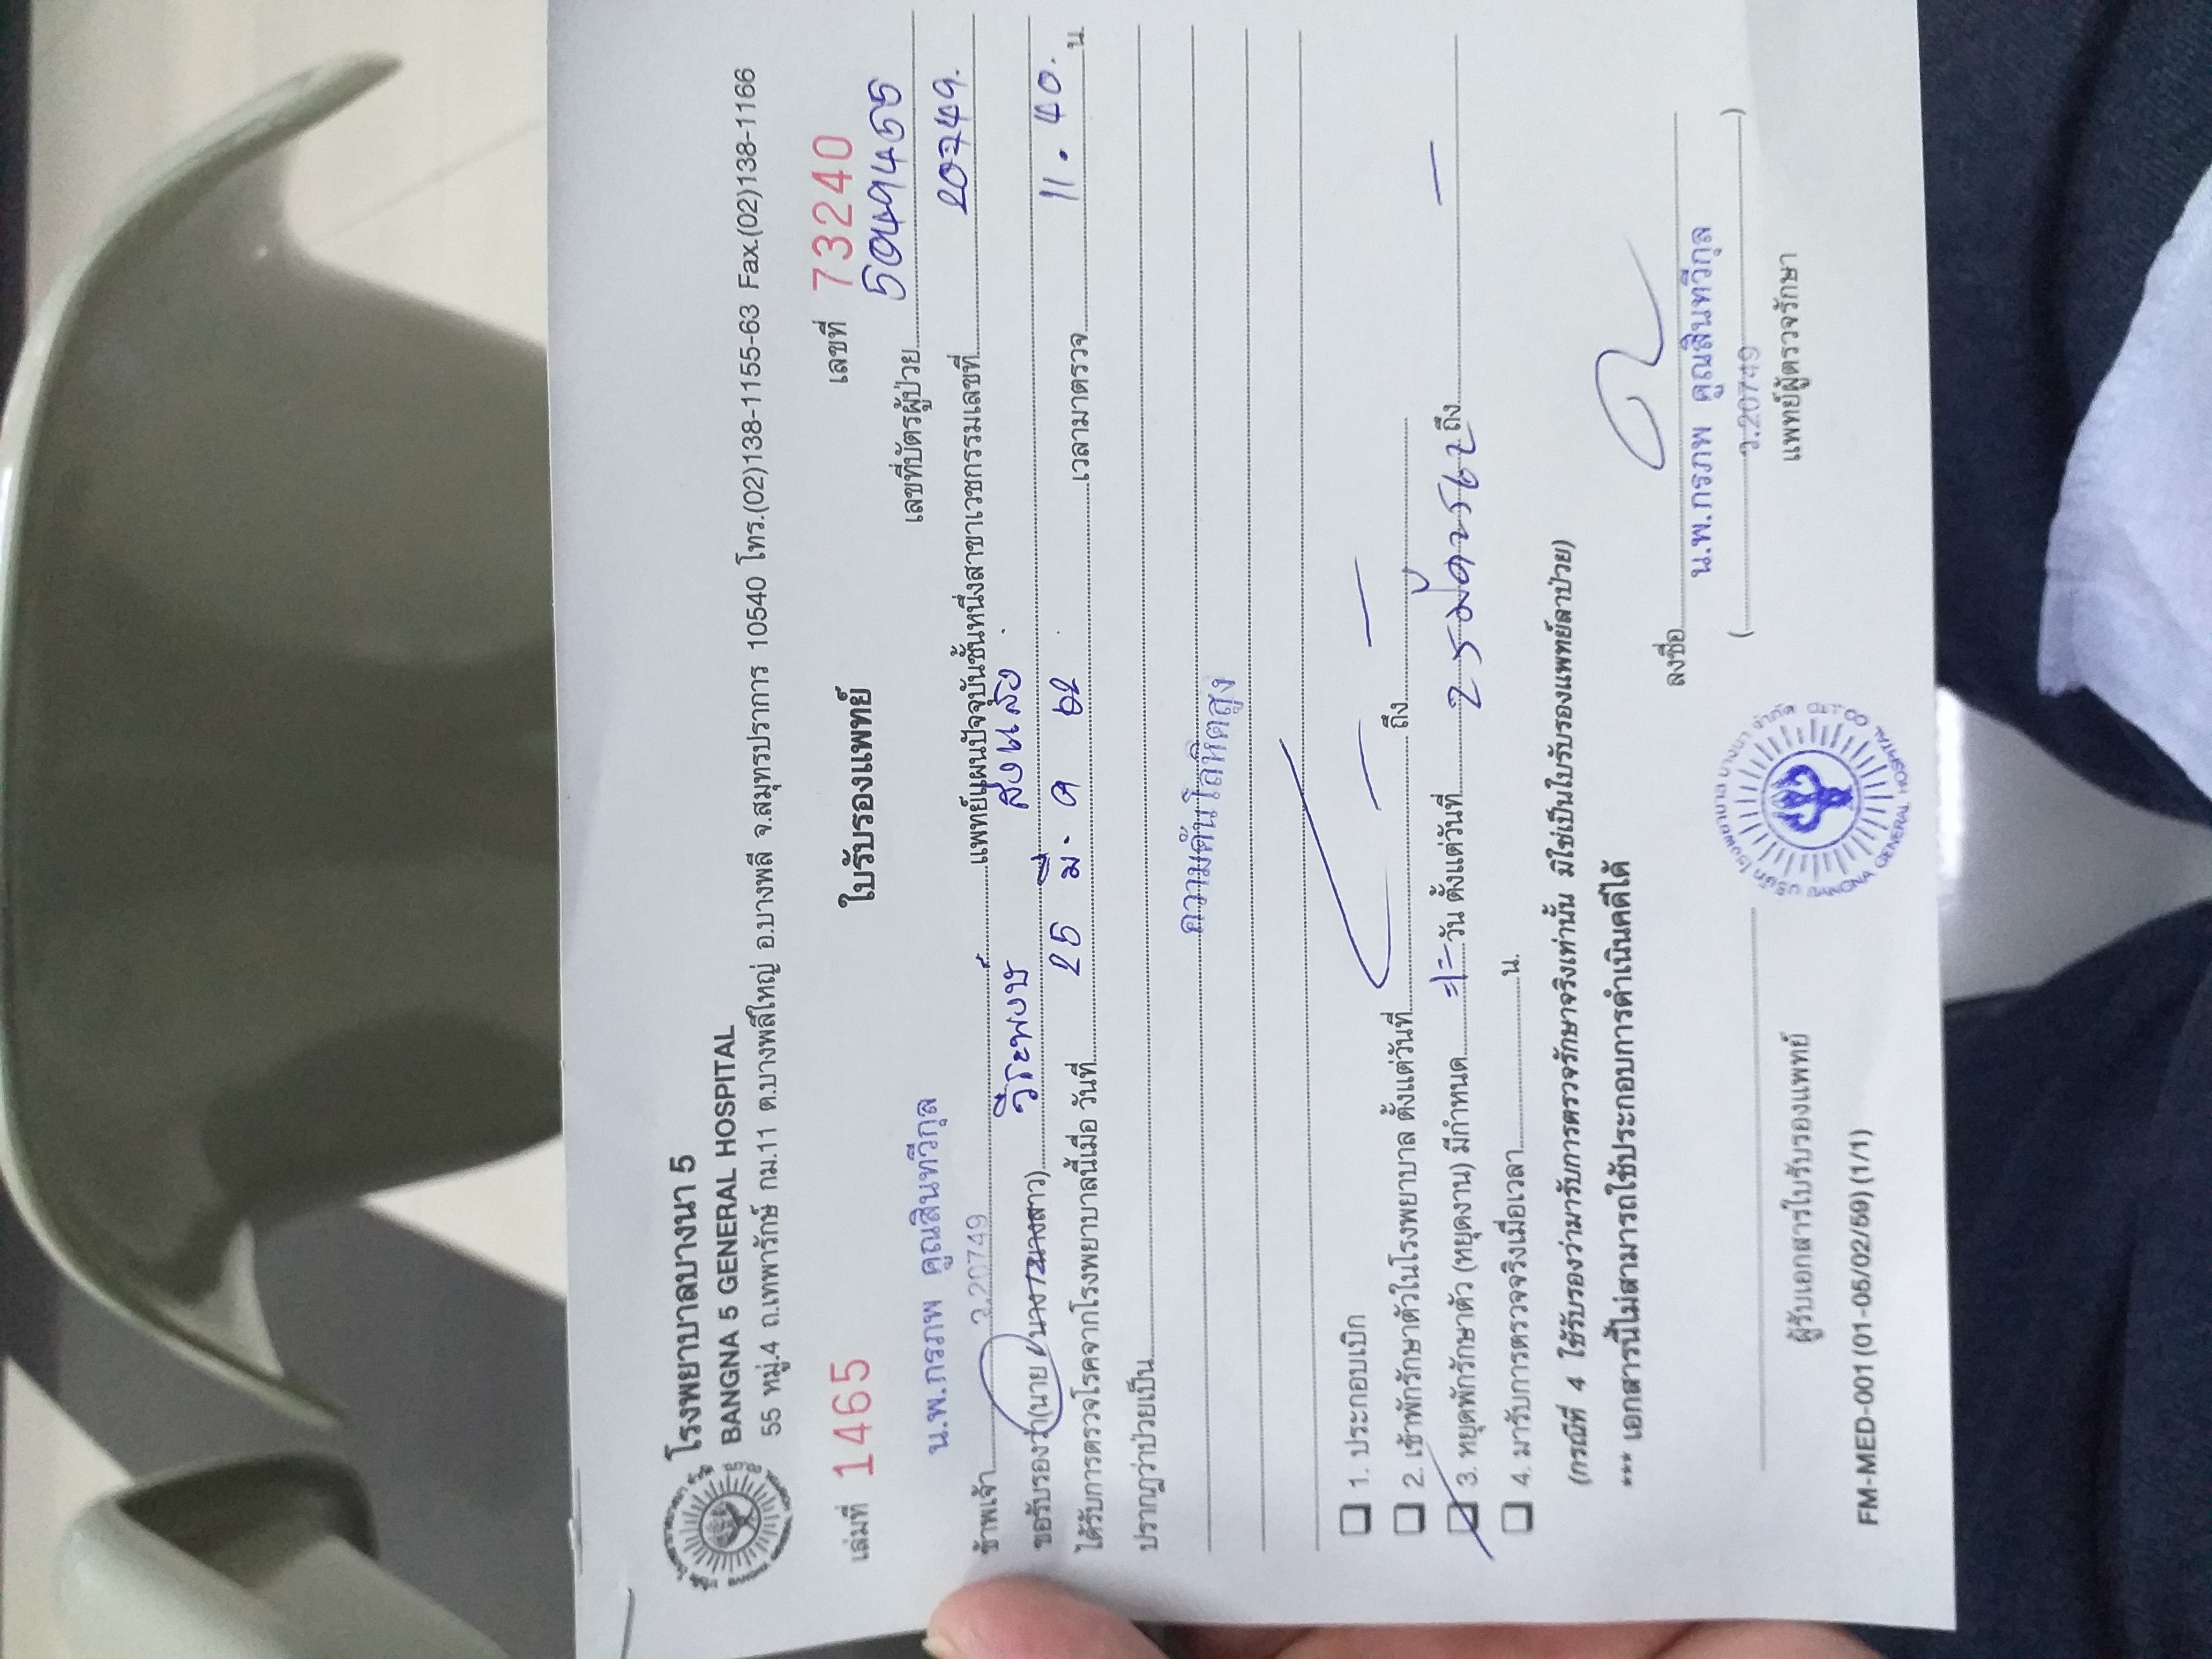 โรงพยาบาลบางนา 5
BANGNA 5 GENERAL HOSPITAL
55 หมู่.4 ถ.เทพารักษ์ กม.11 ต.บางพลีใหญ่ อ.บางพลี จ.สมุทรปราการ 10540 โทร.(02)138-1155-63 Fax.(02)138-1166
เล่มที่ 1465 ใบรับรองแพทย์ เลขที่ 73240
เลขที่บัตรผู้ป่วย 5049455
น.พ.กรภพ คูณสินทวีกุล
ข้าพเจ้า ว.20749 แพทย์แผนปัจจุบันชั้นหนึ่งสาขาเวชกรรมเลขที่ 20749.
ขอรับรองว่า(นาย / นาง / นางสาว) วีระพงษ์ ส่งแสง
ได้รับการตรวจโรคจากโรงพยาบาลนี้เมื่อ วันที่ 25 มี. ค 62 เวลามาตรวจ 11.40. น.
ปรากฎว่าป่วยเป็น
ความดันโลหิตสูง
1. ประกอบเบิก
2. เข้าพักรักษาตัวในโรงพยาบาล ตั้งแต่วันที่ ถึง
3. หยุดพักรักษาตัว (หยุดงาน) มีกำหนด =1= วัน ตั้งแต่วันที่ 25 มีค 2562 ถึง —
4. มารับการตรวจจริงเมื่อเวลา น.
(กรณีที่ 4 ใช้รับรองว่ามารับการตรวจรักษาจริงเท่านั้น มิใช่เป็นใบรับรองแพทย์ลาป่วย)
*** เอกสารนี้ไม่สามารถใช้ประกอบการดำเนินคดีได้
ลงชื่อ
น.พ.กรภพ คูณสินทวีกุล
( ว.20749 )
แพทย์ผู้ตรวจรักษา
ผู้รับเอกสารใบรับรองแพทย์
บริษัท โรงพยาบาล บางนา จำกัด
BANGNA GENERAL HOSPITAL CO.,LTD
FM-MED-001 (01-05/02/59) (1/1)